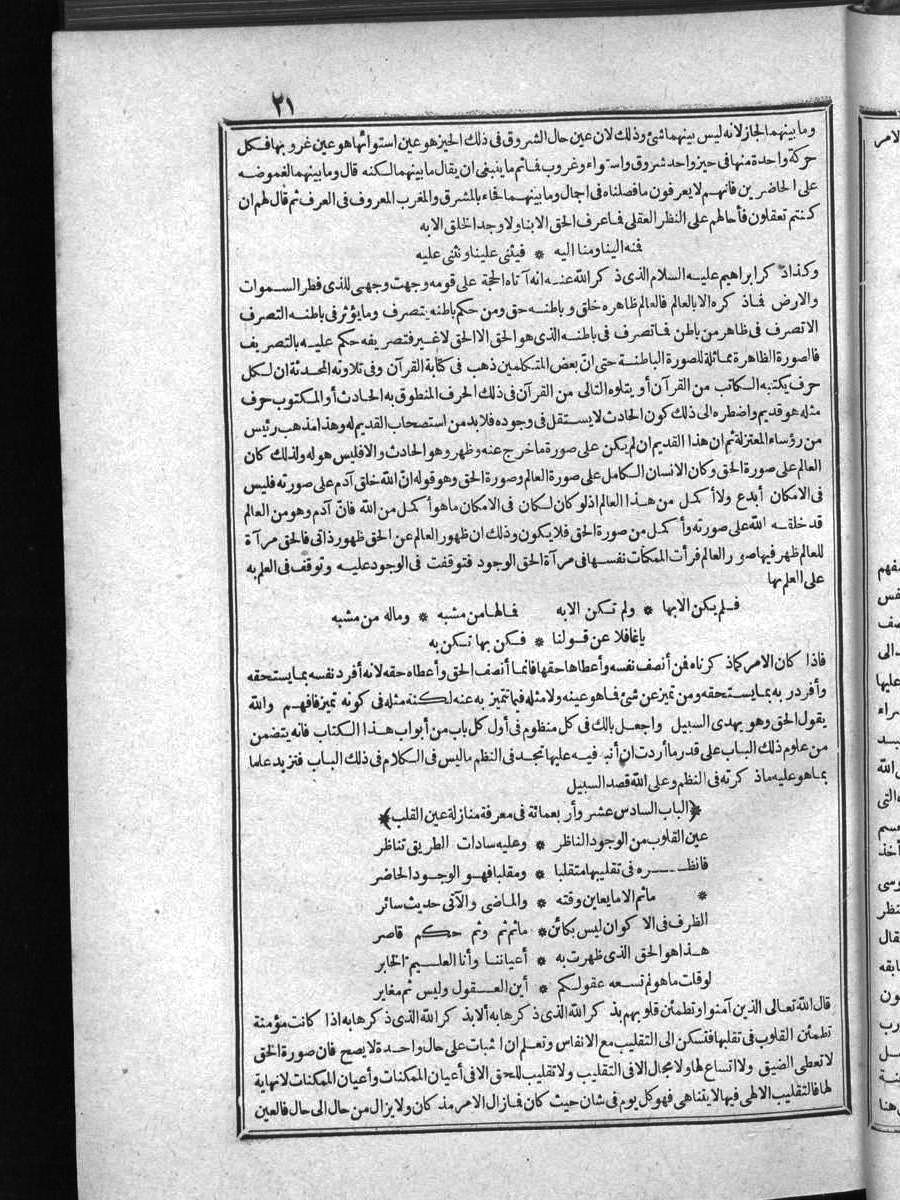 ٢١
وما بينهما لجاز لانه ليس بينهما شئ وذلك لان عين حال الشروق فى ذلك الحيز هو عين استوائها هو عين غروبها فكل
حركة واحدة منها فى حيز واحد شروق واستواء وغروب فما ثم ما ينبغى ان يقال ما بينهما لكنه قال وما بينهما لغموضه
على الحاضرين فانهم لا يعرفون ما فصلناه فى اجمال وما بينهما فجاء بالمشرق والمغرب المعروف فى العرف ثم قال لهم ان
كنتم تعقلون فأحالهم على النظر العقلى فما عرف الحق الا بنا ولا وجد الخلق الا به
فمنه الينا ومنا اليه * فيثنى علينا ونثنى عليه
وكذا ذكر ابراهيم عليه السلام الذى ذكر الله عنه انه آتاه الحجة على قومه وجهت وجهى للذى فطر السموات
والارض فما ذكره الا بالعالم فالعالم ظاهره خلق وباطنه حق ومن حكم باطنه يتصرف وما يؤثر فى باطنه التصرف
الا تصرف فى ظاهر من باطن فما تصرف فى باطنه الذى هو الحق الا الحق لا غير فتصريفه حكم عليه بالتصريف
فالصورة الظاهرة مماثلة للصورة الباطنة حتى انّ بعض المتكلمين ذهب فى كتابة القرآن وفى تلاوته المحدثة ان لكل
حرف يكتبه الكاتب من القرآن أو يتلوه التالى من القرآن فى ذلك الحرف المنطوق به الحادث أو المكتوب حرف
مثله هو قديم واضطره الى ذلك كون الحادث لا يستقل فى وجوده فلا بد من استصحاب القديم له وهذا مذهب رئيس
من رؤساء المعتزلة ثم ان هذا القديم ان لم يكن على صورة ما خرج عنه وظهر وهو الحادث والا فليس هو له ولذلك كان
العالم على صورة الحق وكان الانسان الكامل على صورة العالم وصورة الحق وهو قوله انّ الله خلق آدم على صورته فليس
فى الامكان أبدع ولا أكمل من هذا العالم اذ لو كان لكان فى الامكان ما هو أكمل من الله فانّ آدم وهو من العالم
قد خلقه الله على صورته وأكمل من صورة الحق فلا يكون وذلك ان ظهور العالم عن الحق ظهور ذاتى فالحق مرآة
للعالم ظهر فيها صور العالم فرأت الممكنات نفسها فى مرآة الحق الوجود فتوقفت فى الوجود عليه وتوقف فى العلم به
على العلم بها
فلم يكن الا بها * ولم تكن الا به فما لها من مشبه * وماله من مشبه
يا غافلا عن قولنا * فكن بها تكن به
فاذا كان الامر كما ذكرناه فمن أنصف نفسه وأعطاها حقها فانما أنصف الحق وأعطاه حقه لانه أفرد نفسه بما يستحقه
وأفرد ربه بما يستحقه ومن تميز عن شئ فما هو عينه ولا مثله فيما تميز به عنه لكنه مثله فى كونه تميز فافهم والله
يقول الحق وهو يهدى السبيل واجعل بالك فى كل منظوم فى أول كل باب من أبواب هذا الكتاب فانه يتضمن
من علوم ذلك الباب على قدر ما أردت ان أنبه فيه عليها تجد فى النظم ما ليس فى الكلام فى ذلك الباب فتزيد علما
بما هو عليه ما ذكرته فى النظم وعلى الله قصد السبيل
﴿الباب السادس عشر وأربعمائة فى معرفة منازلة عين القلب﴾
عين القلوب من الوجود الناظر * وعليه سادات الطريق تناظر
فانظـــره فى تقليبها متقلبا * ومقلبا فهو الوجود الحاضر
* ما ثم الا ما يعاين وقته * والماضى والآتى حديث سائر
الظرف فى الاكوان ليس بكائن * ما ثم ثم وثم حكم قاصر
هذا هو الحق الذى ظهرت به * أعياننا وأنا العليم الخابر
لو قلت ما هو لم تسعه عقولكم * أين العقول وليس ثم مغاير
قال الله تعالى الذين آمنوا وتطمئن قلوبهم بذكر الله الذى ذكرها به ألا بذكر الله الذى ذكرها به اذا كانت مؤمنة
تطمئن القلوب فى تقلبها فتسكن الى التقليب مع الانفاس وتعلم ان الثبات على حال واحدة لا يصح فان صورة الحق
لا تعطى الضيق ولا اتساع لها ولا مجال الا فى التقليب ولا تقليب للحق الا فى أعيان الممكنات وأعيان الممكنات لا نهاية
لها فالتقليب الالهى فيها لا يتناهى فهو كل يوم فى شان حيث كان فما زال الامر مذ كان ولا يزال من حال الى حال فالعين